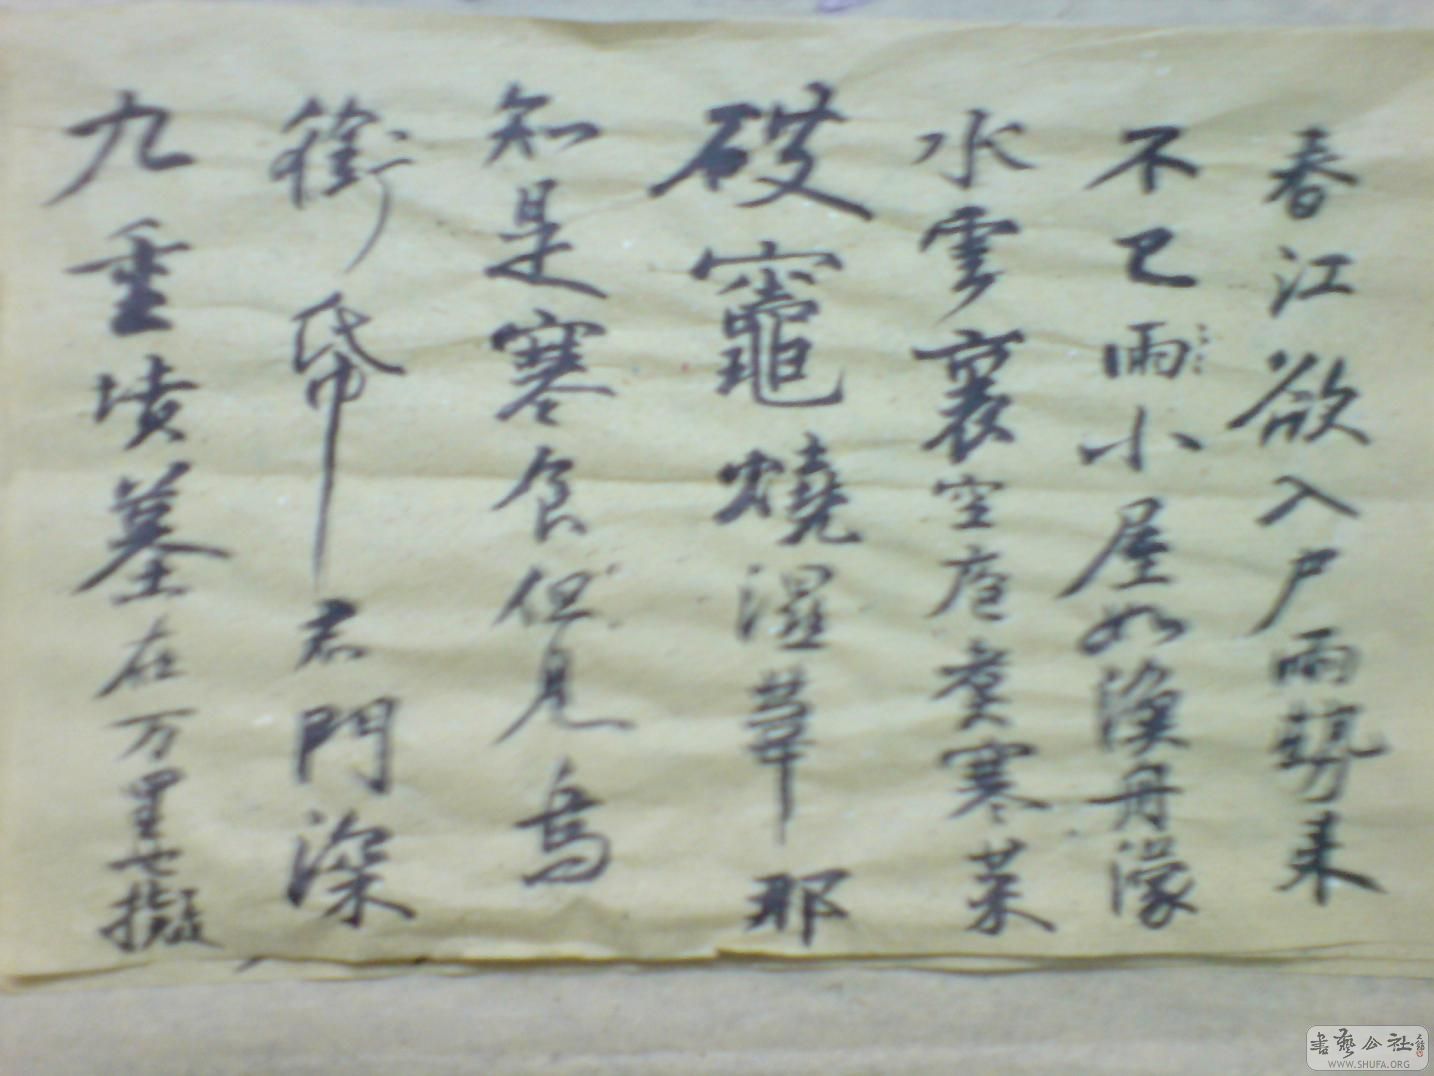 春江欲入户雨勢来
不已雨小屋如漁舟濛
水雲裏空庖煮寒菜
破竈燒濕葦那
知是寒食但見烏
銜帋君門深
九重墳墓在万里也擬
書藝公社
WWW.SHUFA.ORG